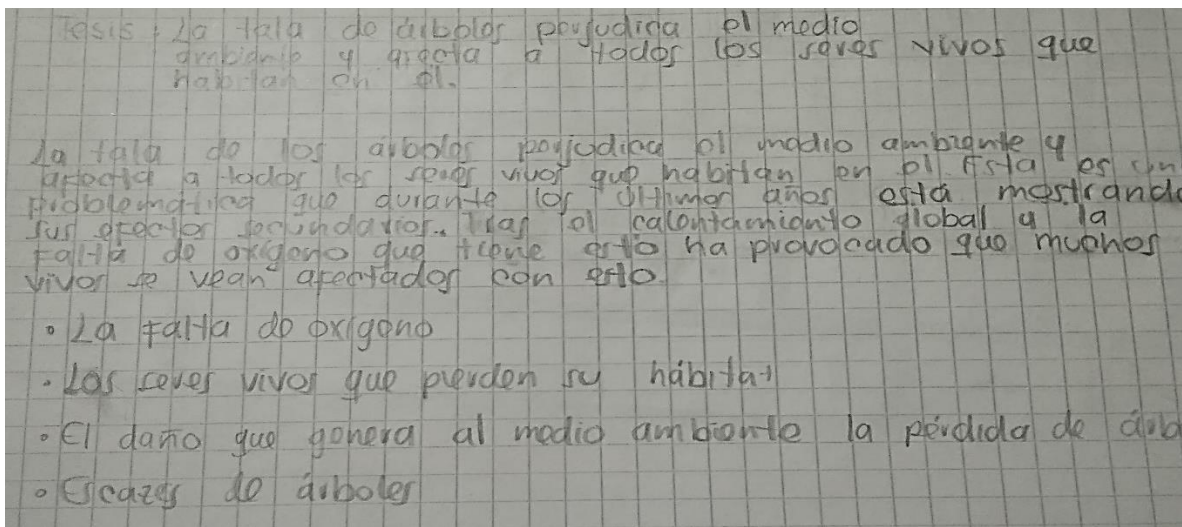 Tesis: La tala de árboles perjudica el medio
ambiente y afecta a todos los seres vivos que
habitan en él.
La tala de los árboles perjudica el medio ambiente y
afecta a todos los seres vivos que habitan en él. Esta es un
problemática que durante los últimos años está mostrando
sus efectos secundarios. Tras el calentamiento global y la
falta de oxígeno que tiene esto ha provocado que muchos
vivos se vean afectados con esto.
• La falta de oxígeno
• Los seres vivos que pierden su hábitat
• El daño que genera al medio ambiente la pérdida de árb
• Escazes de árboles